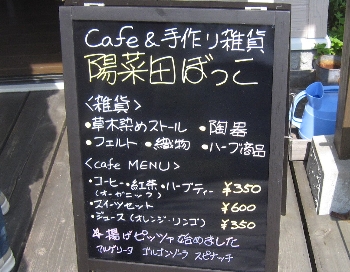 Cafe & 手作り雑貨
陽菜田ぼっこ
〈雑貨〉
・草木染めストール ・陶器
・フェルト ・織物 ・ハーブ商品
〈cafe MENU〉
・コーヒー・紅茶・ハーブティー ¥350
(オーガニック)
・スイーツセット ¥600
・ジュース(オレンジ・リンゴ) ¥350
揚げピッツァ始めました
マルゲリータ ゴルゴンゾーラ スピナッチ